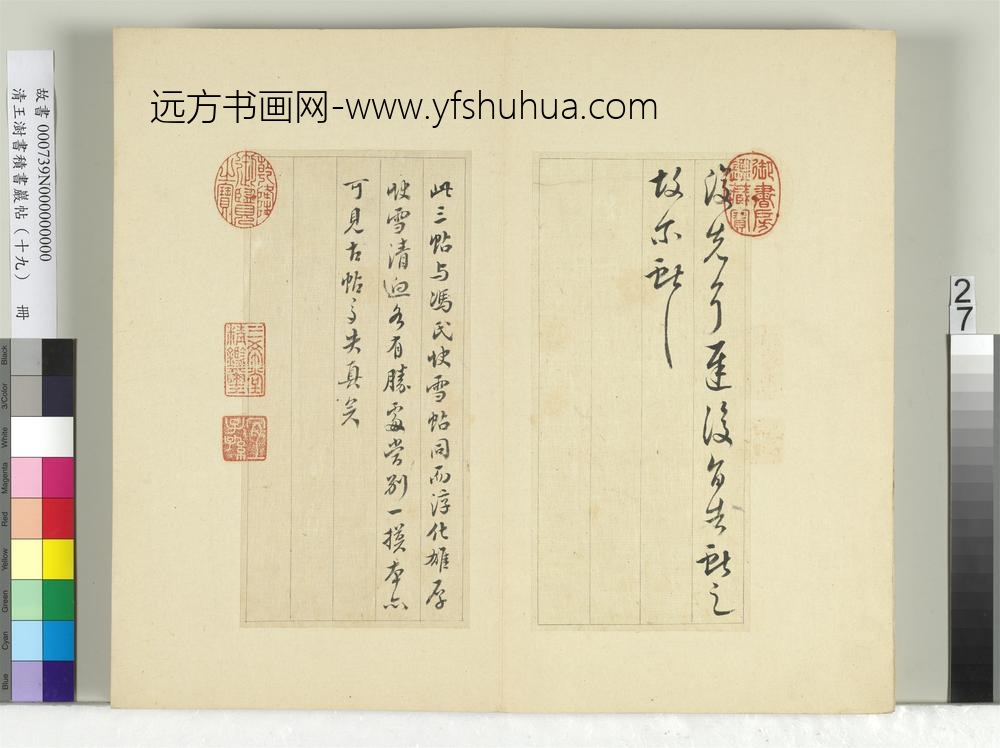 远方书画网-www.yfshuhua.com
故書000739N000000000
清王澍書積書巖帖(十九) 冊
御書房鑑藏寶
復
故尔
獻之
此三帖与馮氏快雪帖同而淳化雄厚
快雪清迥各有勝處當別一摸本亦
可見古帖多失真矣
乾隆御覽之寶
三希堂精鑑璽
宜子孫
27
Black
3/Color
White
Magenta
Red
Yellow
Green
Cyan
Blue